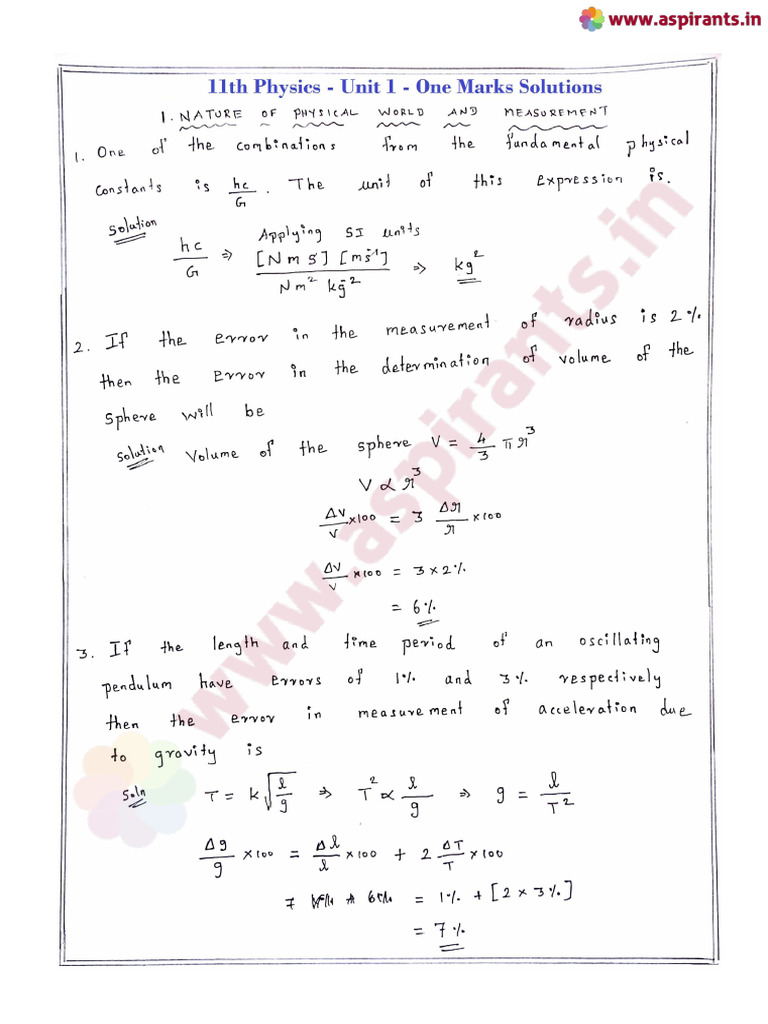 www.aspirants.in
11th Physics - Unit 1 - One Marks Solutions
1. NATURE OF PHYSICAL WORLD AND MEASUREMENT
1. One of the combinations from the fundamental physical
constants is hc/G. The unit of this expression is.
Solution
Applying SI units
hc/G ⇒ [N m s] [m s⁻¹] / N m² kg⁻² ⇒ kg²
2. If the error in the measurement of radius is 2%
then the error in the determination of volume of the
Sphere will be
Solution Volume of the sphere V = 4/3 π r³
V ∝ r³
ΔV/V × 100 = 3 Δr/r × 100
ΔV/V × 100 = 3 × 2%
= 6%
3. If the length and time period of an oscillating
pendulum have errors of 1% and 3% respectively
then the error in measurement of acceleration due
to gravity is
Soln T = k √l/g ⇒ T² ∝ l/g ⇒ g = l/T²
Δg/g × 100 = Δl/l × 100 + 2 ΔT/T × 100
= 1% + [2 × 3%]
= 7%
www.aspirants.in